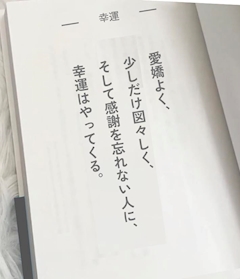 幸運
愛嬌よく、
少しだけ図々しく、
そして感謝を忘れない人に、
幸運はやってくる。